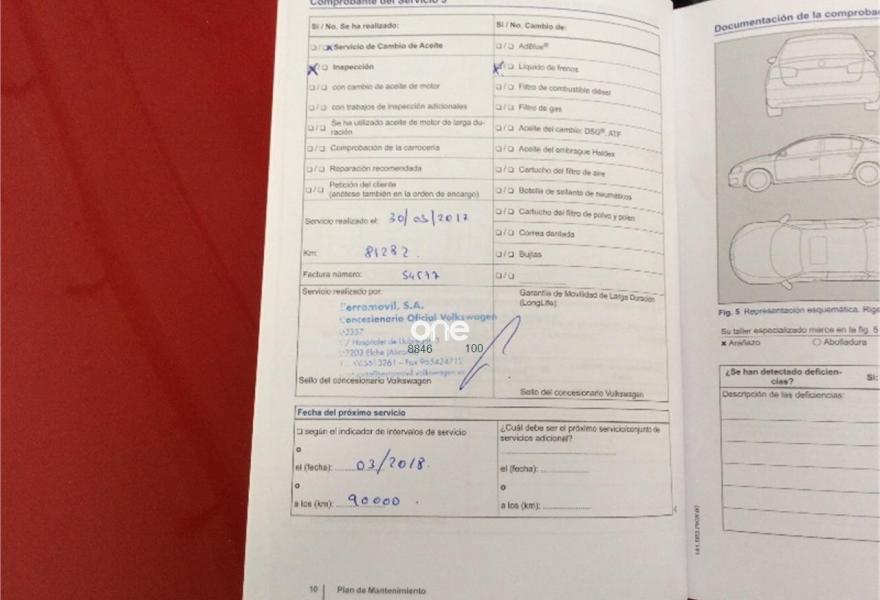 Comprobante del Servicio 5
Sí / No. Se ha realizado:
Servicio de Cambio de Aceite
Inspección
con cambio de aceite de motor
con trabajos de inspección adicionales
Se ha utilizado aceite de motor de larga du-
ración
Comprobación de la carrocería
Reparación recomendada
Petición del cliente
(anótese también en la orden de encargo)
Servicio realizado el: 30/03/2017
Km: 81282
Factura número:
Servicio realizado por:
Ferramovil, S.A.
Concesionario Oficial Volkswagen
Sello del concesionario Volkswagen
Sí / No. Cambio de:
AdBlue®
Líquido de frenos
Filtro de combustible diésel
Filtro de gas
Aceite del cambio: DSG®, ATF
Aceite del embrague Haldex
Cartucho del filtro de aire
Botella de sellante de neumáticos
Cartucho del filtro de polvo y polen
Correa dentada
Bujías
Garantía de Movilidad de Larga Duración
(LongLife):
one
8846 100
Sello del concesionario Volkswagen
Fecha del próximo servicio
según el indicador de intervalos de servicio
o
el (fecha): 03/2018.
o
a los (km): 90000.
¿Cuál debe ser el próximo servicio/conjunto de
servicios adicional?
el (fecha):
o
a los (km):
10 Plan de Mantenimiento
Documentación de la comproba
Fig. 5 Representación esquemática. Rige
Su taller especializado marca en la fig. 5
x Arañazo O Abolladura
¿Se han detectado deficien-
cias? Sí:
Descripción de las deficiencias: